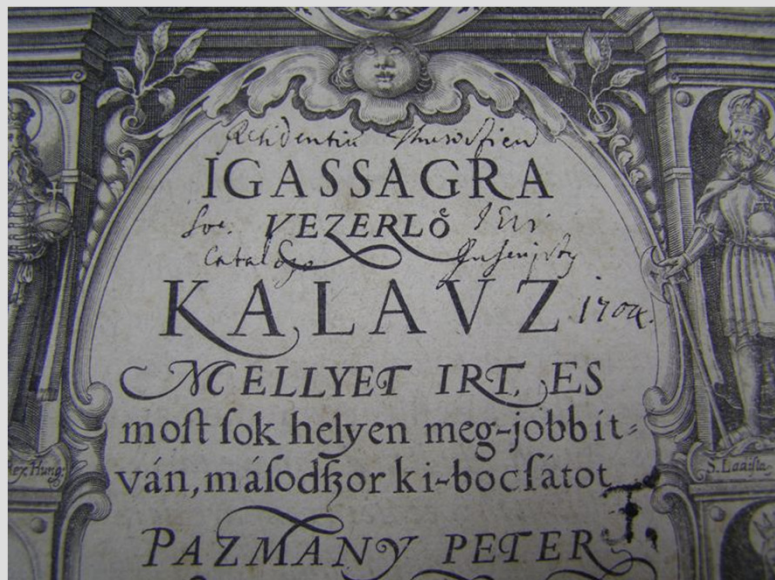 Residentiæ
IGASSAGRA
Soc. VEZERLŐ
Catalogo
KALAVZ 1704.
MELLYET IRT, ES
most sok helyen meg-jobbít-
ván, másodszor ki-bocsátot
PAZMANY PETER